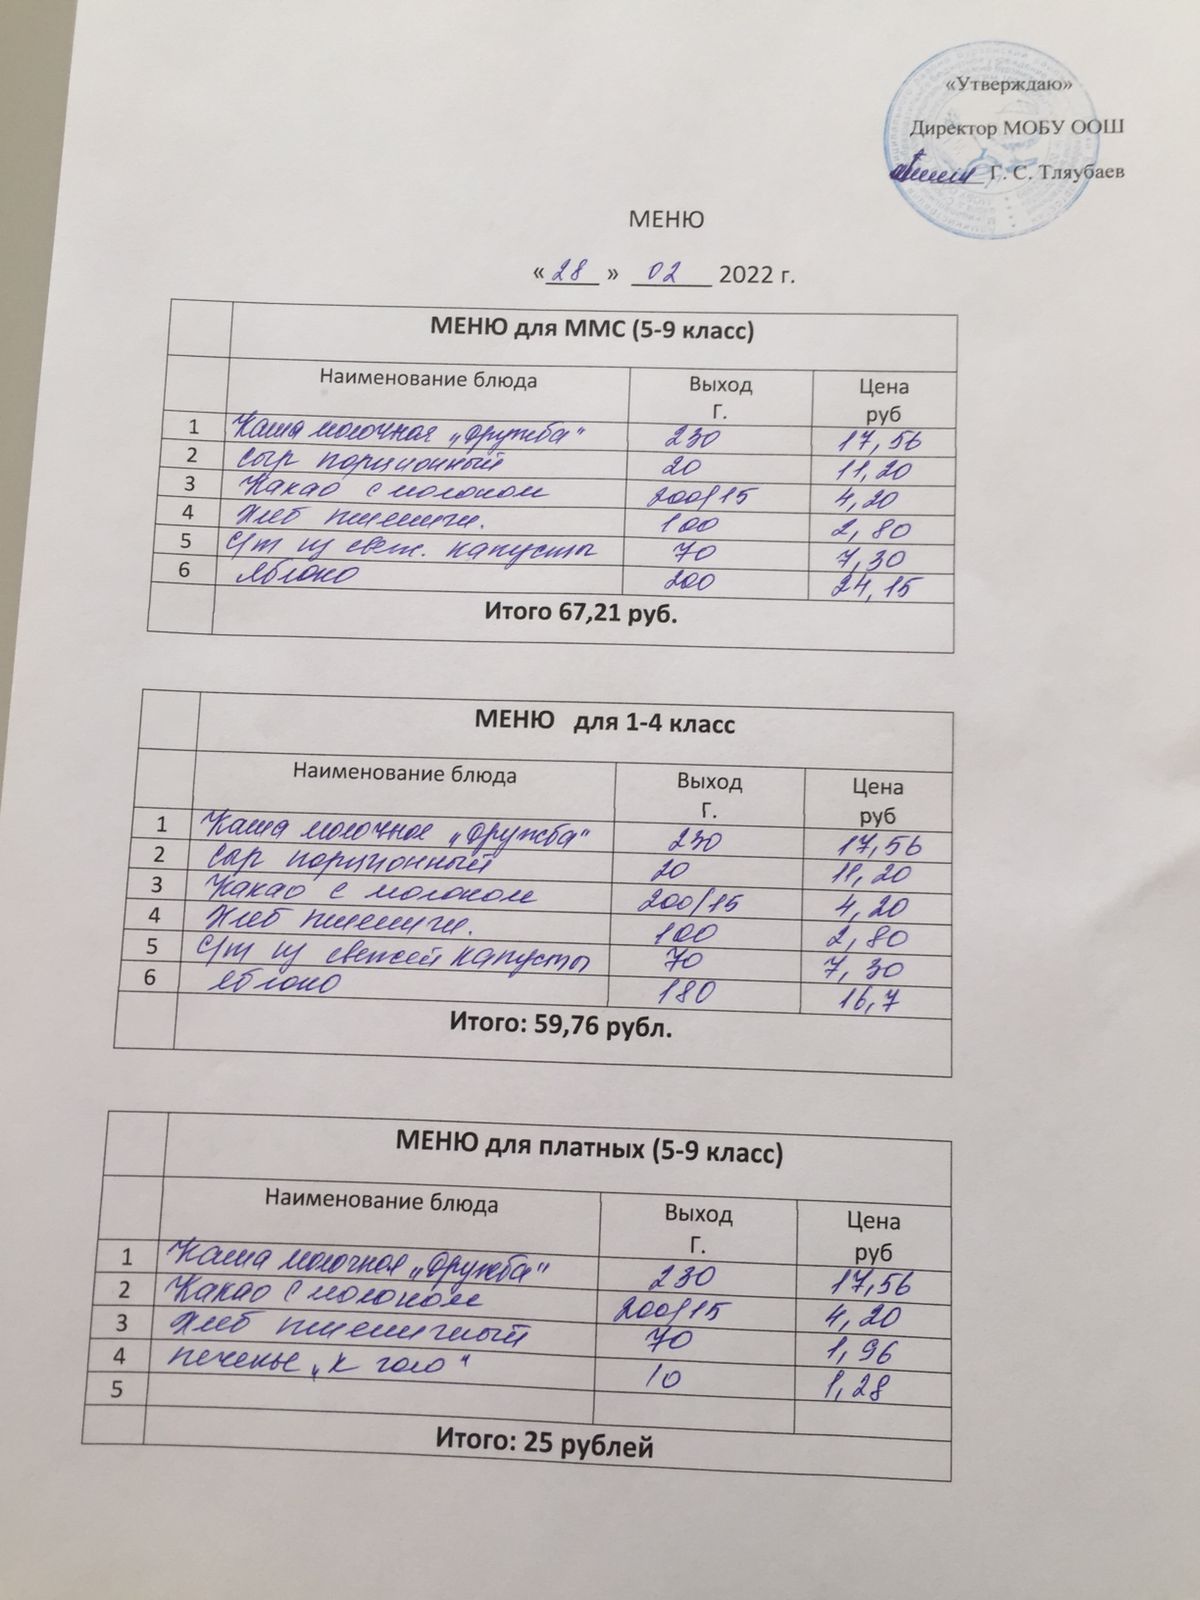 «Утверждаю»
Директор МОБУ ООШ
Г. С. Тляубаев
МЕНЮ
« 28 » 02 2022 г.
МЕНЮ для ММС (5-9 класс)
Наименование блюда Выход Г. Цена руб
1 Каша молочная „Дружба" 230 17,56
2 Сыр порционный 20 11,20
3 Какао с молоком 200/15 4,20
4 Хлеб пшенич. 100 2,80
5 С/т из свеж. капусты 70 7,30
6 Яблоко 200 24,15
Итого 67,21 руб.
МЕНЮ для 1-4 класс
Наименование блюда Выход Г. Цена руб
1 Каша молочная „Дружба" 230 17,56
2 Сыр порционный 20 11,20
3 Какао с молоком 200/15 4,20
4 Хлеб пшенич. 100 2,80
5 С/т из свежей капусты 70 7,30
6 Яблоко 180 16,7
Итого: 59,76 рубл.
МЕНЮ для платных (5-9 класс)
Наименование блюда Выход Г. Цена руб
1 Каша молочная „Дружба" 230 17,56
2 Какао с молоком 200/15 4,20
3 Хлеб пшеничный 70 1,96
4 печенье „К 10 1,28
5
Итого: 25 рублей